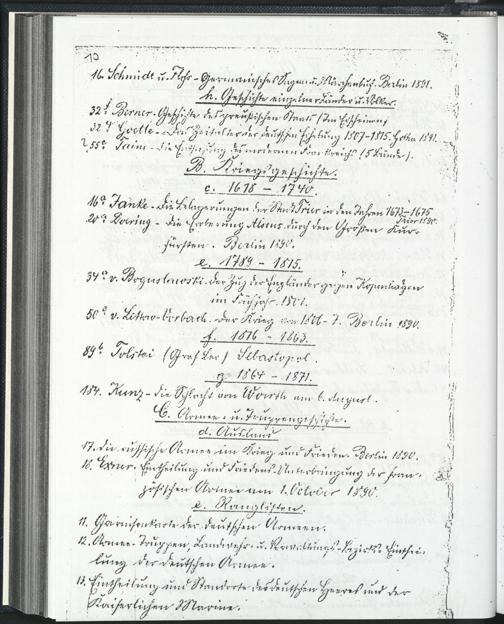 10
16. Schmidt u. Floß - Germanisches Sagen u. Märchenbuch. Berlin 1891.
h. Geschichte einzelner Länder u. Völker.
32 f Berner - Geschichte des preußischen Staats (Im Erscheinen)
32 g Goette - Das Zeitalter der deutschen Erhebung 1807-1815. Gotha 1891.
55 a Taine - Die Entstehung des modernen Frankreichs (5 Bände).
B. Kriegsgeschichte.
c. 1618 - 1740.
16 a Janke - Die Belagerungen der Stadt Trier in den Jahren 1673-1675
Trier 1890.
20 a Doering - Die Eroberung Alsens durch den Großen Kur-
fürsten. Berlin 1890.
e. 1789 - 1815.
34 a v. Boguslawski. Der Zug der Engländer gegen Kopenhagen
im Jahre 1801.
50 a v. Lettow-Vorbeck. Der Krieg von 1806-7. Berlin 1890.
f. 1816 - 1863.
89 b Tolstoi (Graf Leo) Sebastopol.
g. 1864 - 1871.
184. Kunz - Die Schlacht von Wörth am 6. August.
C. Armee- u. Truppengeschichte.
d. Ausland
17. Die russische Armee im Krieg und Frieden. Berlin 1890.
18. Exner. Eintheilung und Friedens-Unterbringung der fran-
zösischen Armee am 1. October 1890.
e. Ranglisten.
11. Garnisonkarte der deutschen Armeen.
12. Armee-Truppen, Landwehr- u. Verwaltungs-Bezirks Einthei-
lung der deutschen Armee.
13. Eintheilung und Standorte des deutschen Heeres und der
Kaiserlichen Marine.